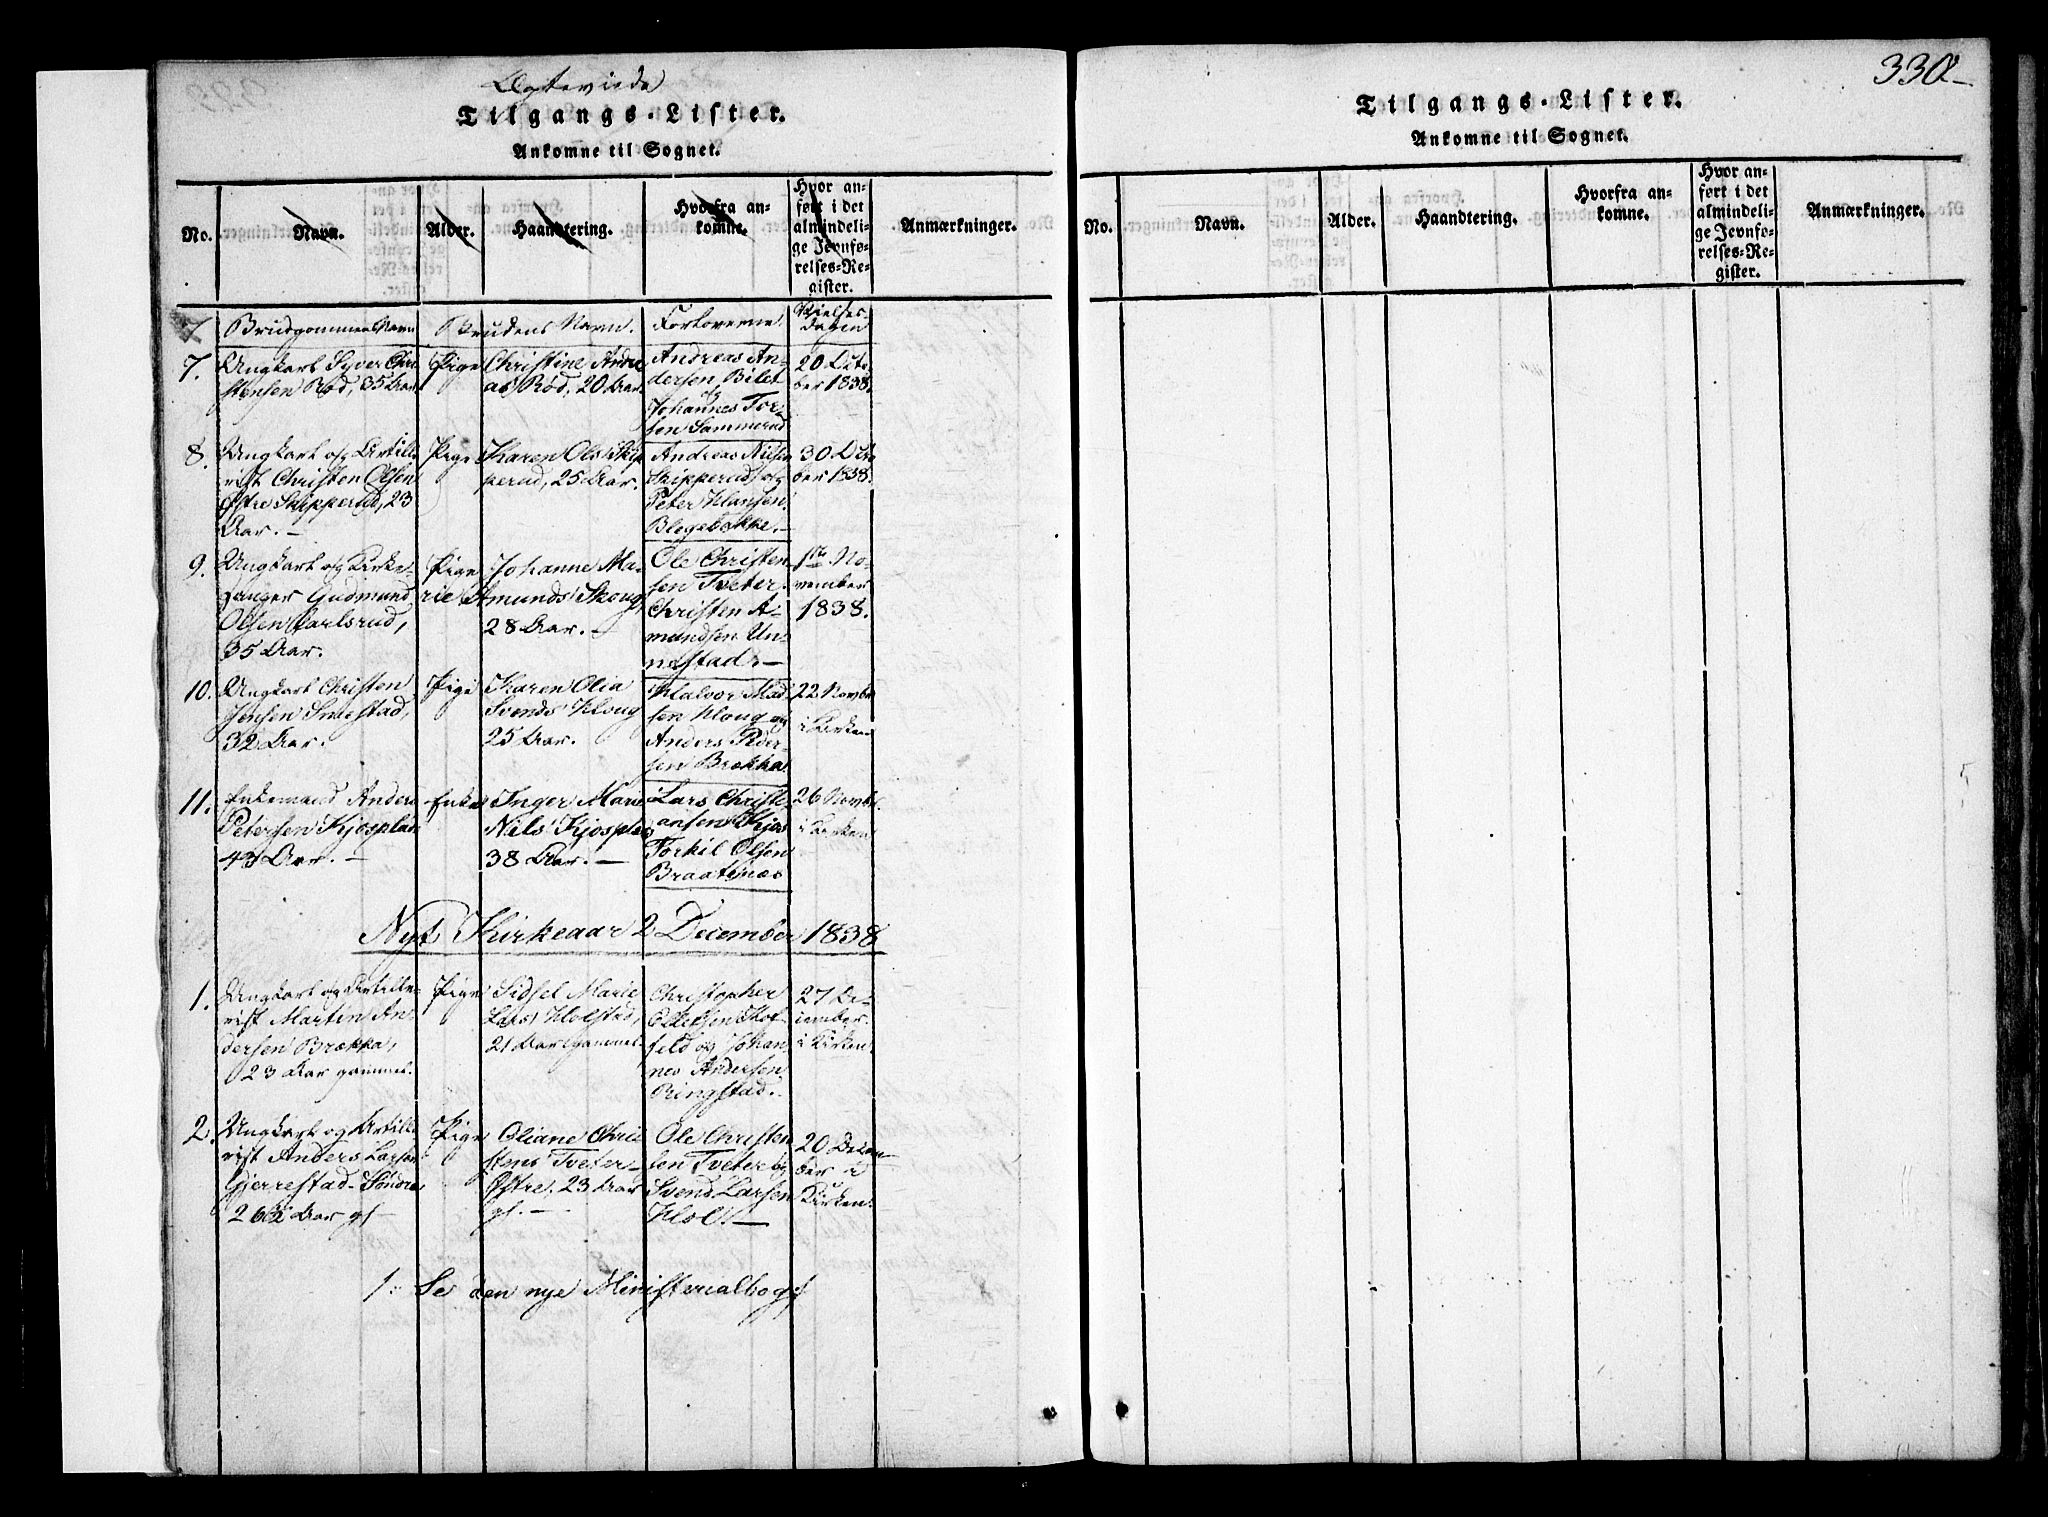 Ægteviede
Tilgangs-Lister.
Ankomne til Sognet.
No. Navn. Alder. Haandtering. Hvorfra ankomne. Hvor anført i det almindelige Jevnførelses-Register. Anmærkninger.
Brudgommens Navn Brudens Navn. Forloverne. Vielsesdagen
7. Ungkarl Syver Chri
stensen Rød, 35 Aar
Pige Christine Andre
as Rød, 20 Aar.
Andreas An-
dersen Bilet
og
Johannes Tor-
sen Sammerud
20 Octo-
ber 1838.
8. Ungkarl og Artille
rist Christen Olsen
Østre Skipperud, 23
Aar. –
Pige Karen Ols Skip
perud, 25 Aar.
Andreas
Skipperud og
Peter Hansen
Blegebakke. –
30 Octo
ber 1838.
9. Ungkarl og Kirke-
sanger Gudmund
Olsen Karlsrud,
35 Aar.
Pige Johanne Ma-
rie Amunds Skoug,
28 Aar. –
Ole Christen-
sen Tveter.
Christen A-
mundsen Un-
nestad. –
1ste No-
vember
1838.
10. Ungkarl Christen
Jensen Smestad,
32 Aar.
Pige Karen Olia
Svends Houg
25 Aar.
Halvor Mad-
sen Houg og
Anders Peder-
sen Brækka
22 Novbr
i Kirken
11. Enkemand Anders
Petersen Kjosplads
43 Aar. –
Enke Inger Marie
Nils Kjosplads
38 Aar. –
Lars Christi-
ansen Kjos
Torkil Olsen
Braatenæs
26 Novbr.
i Kirken
Nyt Kirkeaar 2 December 1838
1. Ungkarl og Artille-
rist Martin An-
dersen Brækka,
23 Aar gammel.
Pige Sidsel Marie
Lars Holstad,
21 Aar gammel
Christopher
Ellefsen Hof-
feld og Johan-
nes Andersen
Ringstad.
27 De-
cember
i Kirken.
2. Ungkarl og Artille
rist Anders Larsen
Gjerrestad Søndre
Aar gl
Pige Oliane Chri
stens Tveter
Østre, 23 Aar
gl. –
Ole Christen
sen Tveter og
Svend Larsen
Hol. –
20 Decem-
ber i
Kirken.
/: Se den nye Ministerialbog :/
330
Tilgangs-Lister.
Ankomne til Sognet.
No. Navn. Alder. Haandtering. Hvorfra ankomne. Hvor anført i det almindelige Jevnførelses-Register. Anmærkninger.